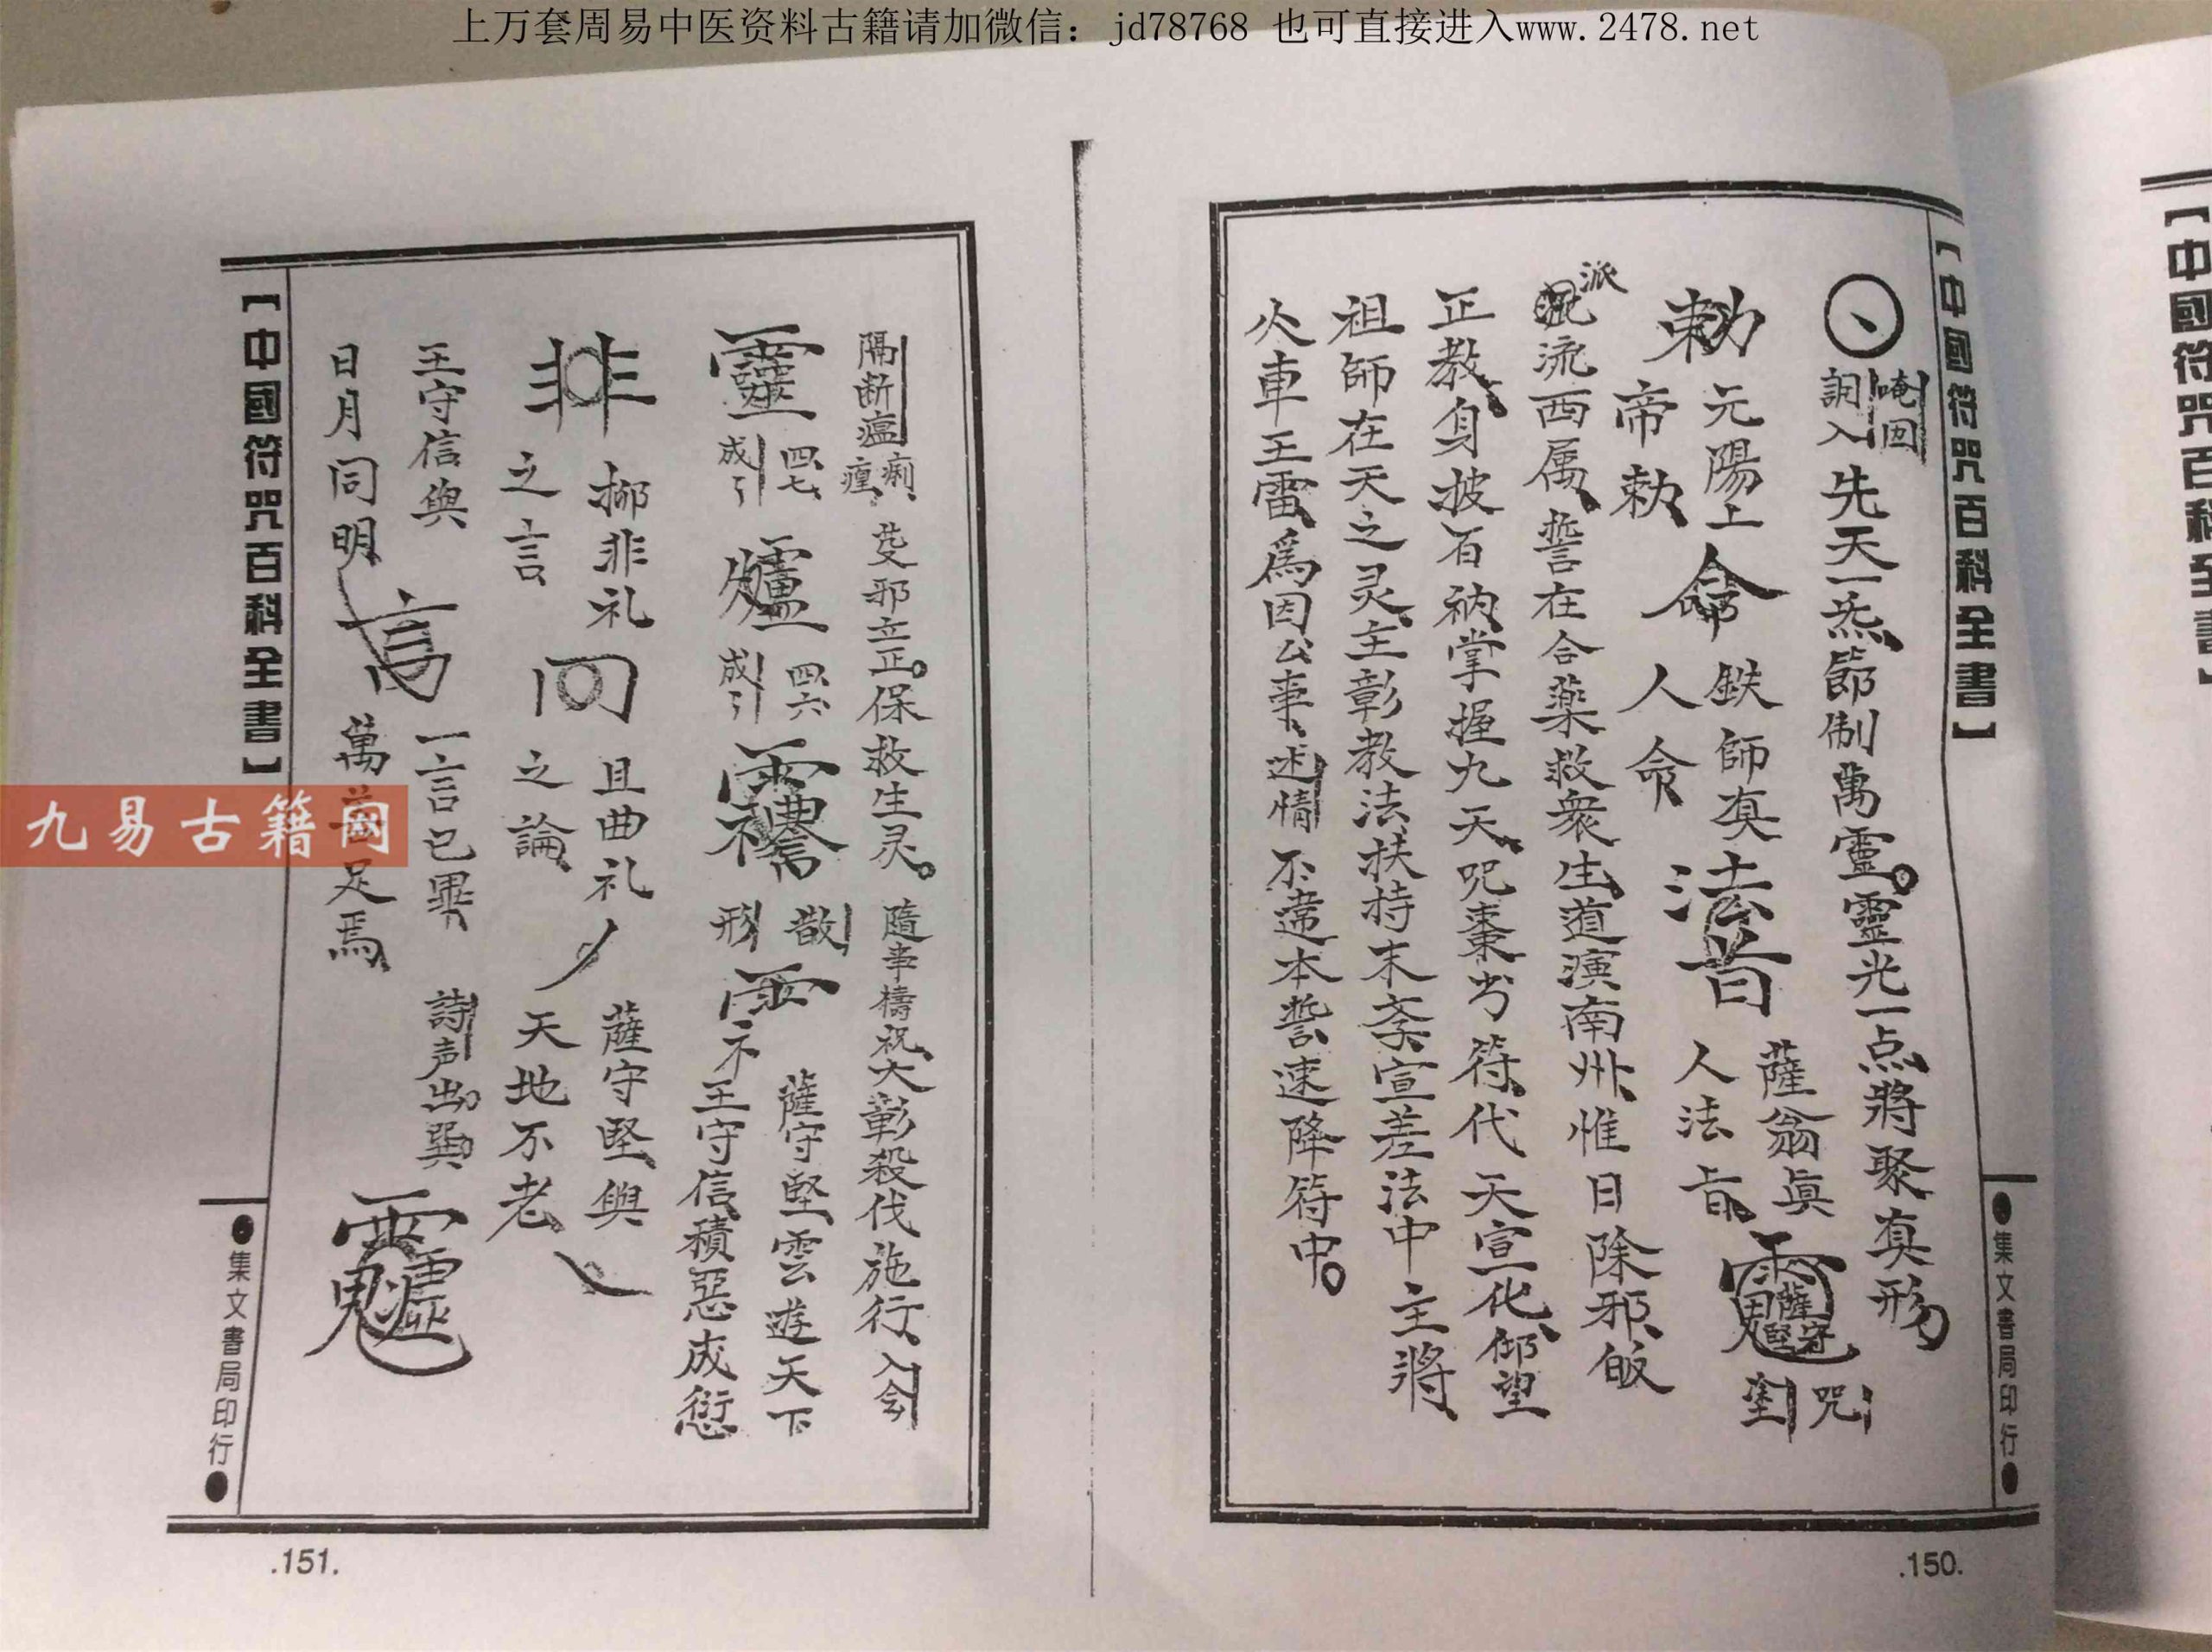 上万套周易中医资料古籍请加微信：jd78768 也可直接进入www.2478.net
【中國符咒百科全書】
●集文書局印行●
唵回
調入
先天一炁節制萬靈。靈光一点將聚真形
勅
元陽上
帝勅
命
鉄師真
人命
法旨
薩翁眞
人法旨
咒
對
派
流西属誓在合藥救衆生道演南州惟日除邪皈
正教身披百衲掌握九天呪棗书符代天宣化仰望
祖師在天之灵主彰教法扶持末裔宣差法中主將
火車王雷爲因公事述情不違本誓速降符中。
.150.
隔断瘟
痢
瘽
芟邪立正。保救生灵。隨事禱祝大彰殺伐施行入会
靈
四七
成引
四六
成引
散
形
薩守堅雲遊天下
王守信積惡成愆
非
挪非礼
之言
回
且曲礼
之論
薩守堅與
天地不老
王守信與
日月同明
言
一言已畢
萬善足焉
詩声出巽
【中國符咒百科全書】
●集文書局印行●
.151.
九易古籍网
【中國符咒百科全書】